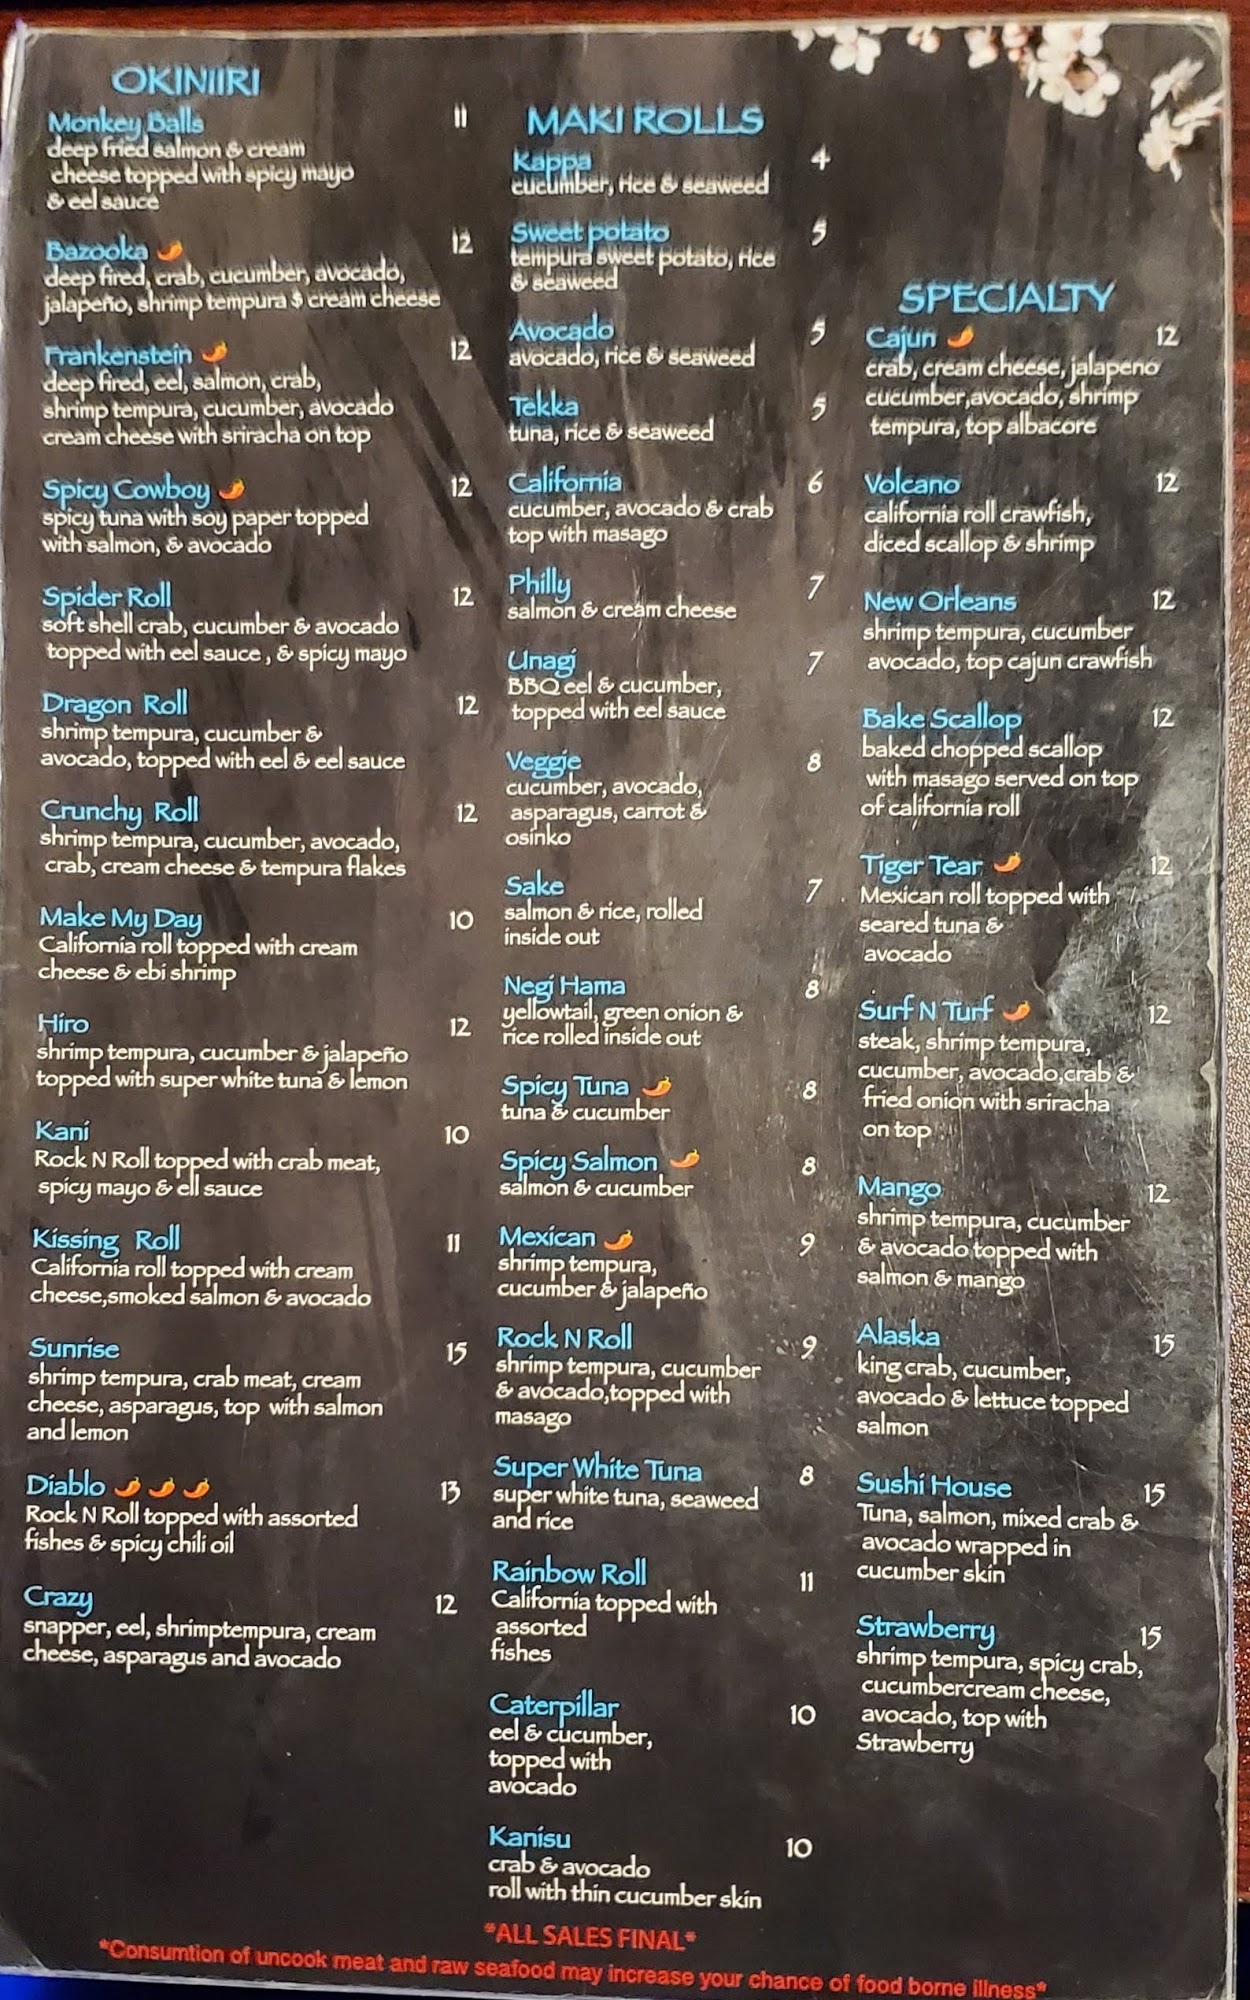 OKINIIRI
Monkey Balls 11
deep fried salmon & cream
cheese topped with spicy mayo
& eel sauce
Bazooka 12
deep fired, crab, cucumber, avocado,
jalapeño, shrimp tempura $ cream cheese
Frankenstein 12
deep fired, eel, salmon, crab,
shrimp tempura, cucumber, avocado
cream cheese with sriracha on top
Spicy Cowboy 12
spicy tuna with soy paper topped
with salmon, & avocado
Spider Roll 12
soft shell crab, cucumber & avocado
topped with eel sauce , & spicy mayo
Dragon Roll 12
shrimp tempura, cucumber &
avocado, topped with eel & eel sauce
Crunchy Roll 12
shrimp tempura, cucumber, avocado,
crab, cream cheese & tempura flakes
Make My Day 10
California roll topped with cream
cheese & ebi shrimp
Hiro 12
shrimp tempura, cucumber & jalapeño
topped with super white tuna & lemon
Kani 10
Rock N Roll topped with crab meat,
spicy mayo & ell sauce
Kissing Roll 11
California roll topped with cream
cheese,smoked salmon & avocado
Sunrise 15
shrimp tempura, crab meat, cream
cheese, asparagus, top with salmon
and lemon
Diablo 13
Rock N Roll topped with assorted
fishes & spicy chili oil
Crazy 12
snapper, eel, shrimptempura, cream
cheese, asparagus and avocado
MAKI ROLLS
Kappa 4
cucumber, rice & seaweed
Sweet potato 5
tempura sweet potato, rice
& seaweed
Avocado 5
avocado, rice & seaweed
Tekka 5
tuna, rice & seaweed
California 6
cucumber, avocado & crab
top with masago
Philly 7
salmon & cream cheese
Unagi 7
BBQ eel & cucumber,
topped with eel sauce
Veggie 8
cucumber, avocado,
asparagus, carrot &
osinko
Sake 7
salmon & rice, rolled
inside out
Negi Hama 8
yellowtail, green onion &
rice rolled inside out
Spicy Tuna 8
tuna & cucumber
Spicy Salmon 8
salmon & cucumber
Mexican 9
shrimp tempura,
cucumber & jalapeño
Rock N Roll 9
shrimp tempura, cucumber
& avocado,topped with
masago
Super White Tuna 8
super white tuna, seaweed
and rice
Rainbow Roll 11
California topped with
assorted
fishes
Caterpillar 10
eel & cucumber,
topped with
avocado
Kanisu 10
crab & avocado
roll with thin cucumber skin
SPECIALTY
Cajun 12
crab, cream cheese, jalapeno
cucumber,avocado, shrimp
tempura, top albacore
Volcano 12
california roll crawfish,
diced scallop & shrimp
New Orleans 12
shrimp tempura, cucumber
avocado, top cajun crawfish
Bake Scallop 12
baked chopped scallop
with masago served on top
of california roll
Tiger Tear 12
Mexican roll topped with
seared tuna &
avocado
Surf N Turf 12
steak, shrimp tempura,
cucumber, avocado,crab &
fried onion with sriracha
on top
Mango 12
shrimp tempura, cucumber
& avocado topped with
salmon & mango
Alaska 15
king crab, cucumber,
avocado & lettuce topped
salmon
Sushi House 15
Tuna, salmon, mixed crab &
avocado wrapped in
cucumber skin
Strawberry 15
shrimp tempura, spicy crab,
cucumbercream cheese,
avocado, top with
Strawberry
*ALL SALES FINAL*
*Consumtion of uncook meat and raw seafood may increase your chance of food borne illness*